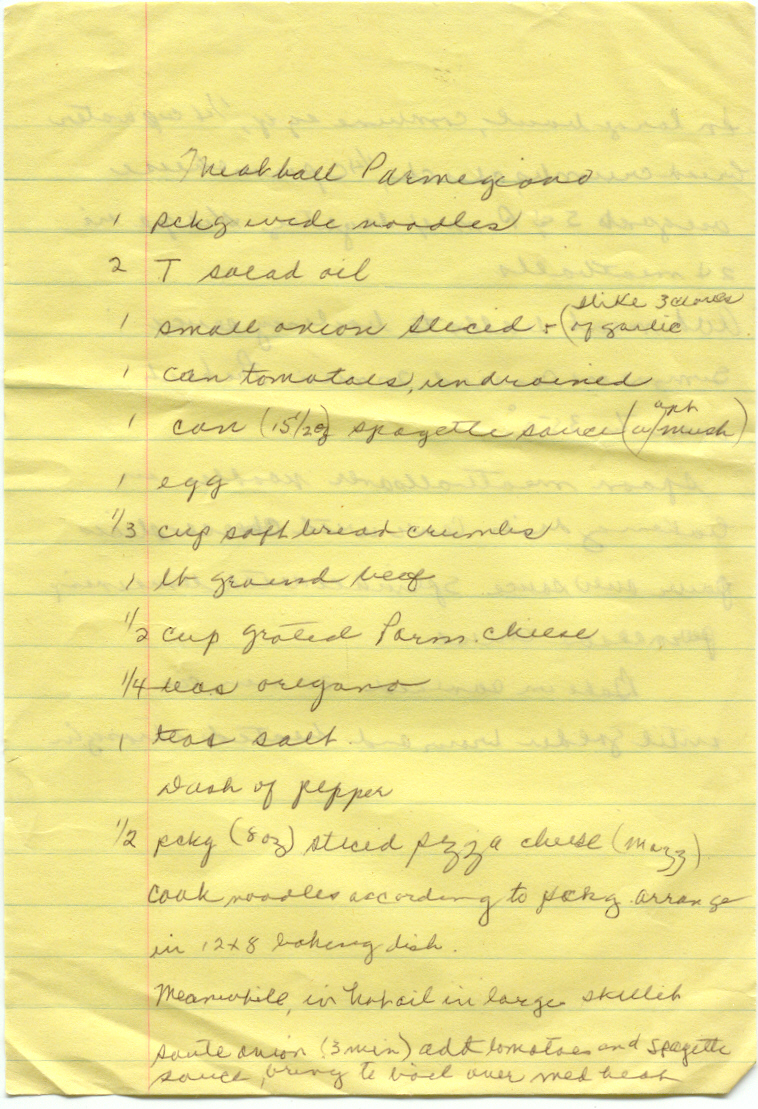 Meatball Parmegiano
1 pckg wide noodles
2 T salad oil
1 small onion sliced + (I like 3 cloves of garlic
1 can tomatoes, undrained
1 can (15 1/2 oz) spagetti sauce (w/ mush)
1 egg
1/3 cup soft bread crumbs
1 lb ground beef
1/2 cup grated Parm. cheese
1/4 teas oregano
1 teas salt.
Dash of pepper
1/2 pckg (8 oz) sliced pizza cheese (Mozz)
cook noodles according to pckg. arrange
in 12x8 baking dish.
Meanwhile, in hot oil in large skillet
saute onion (3 min) add tomatoes and spagetti
sauce, bring to boil over med heat